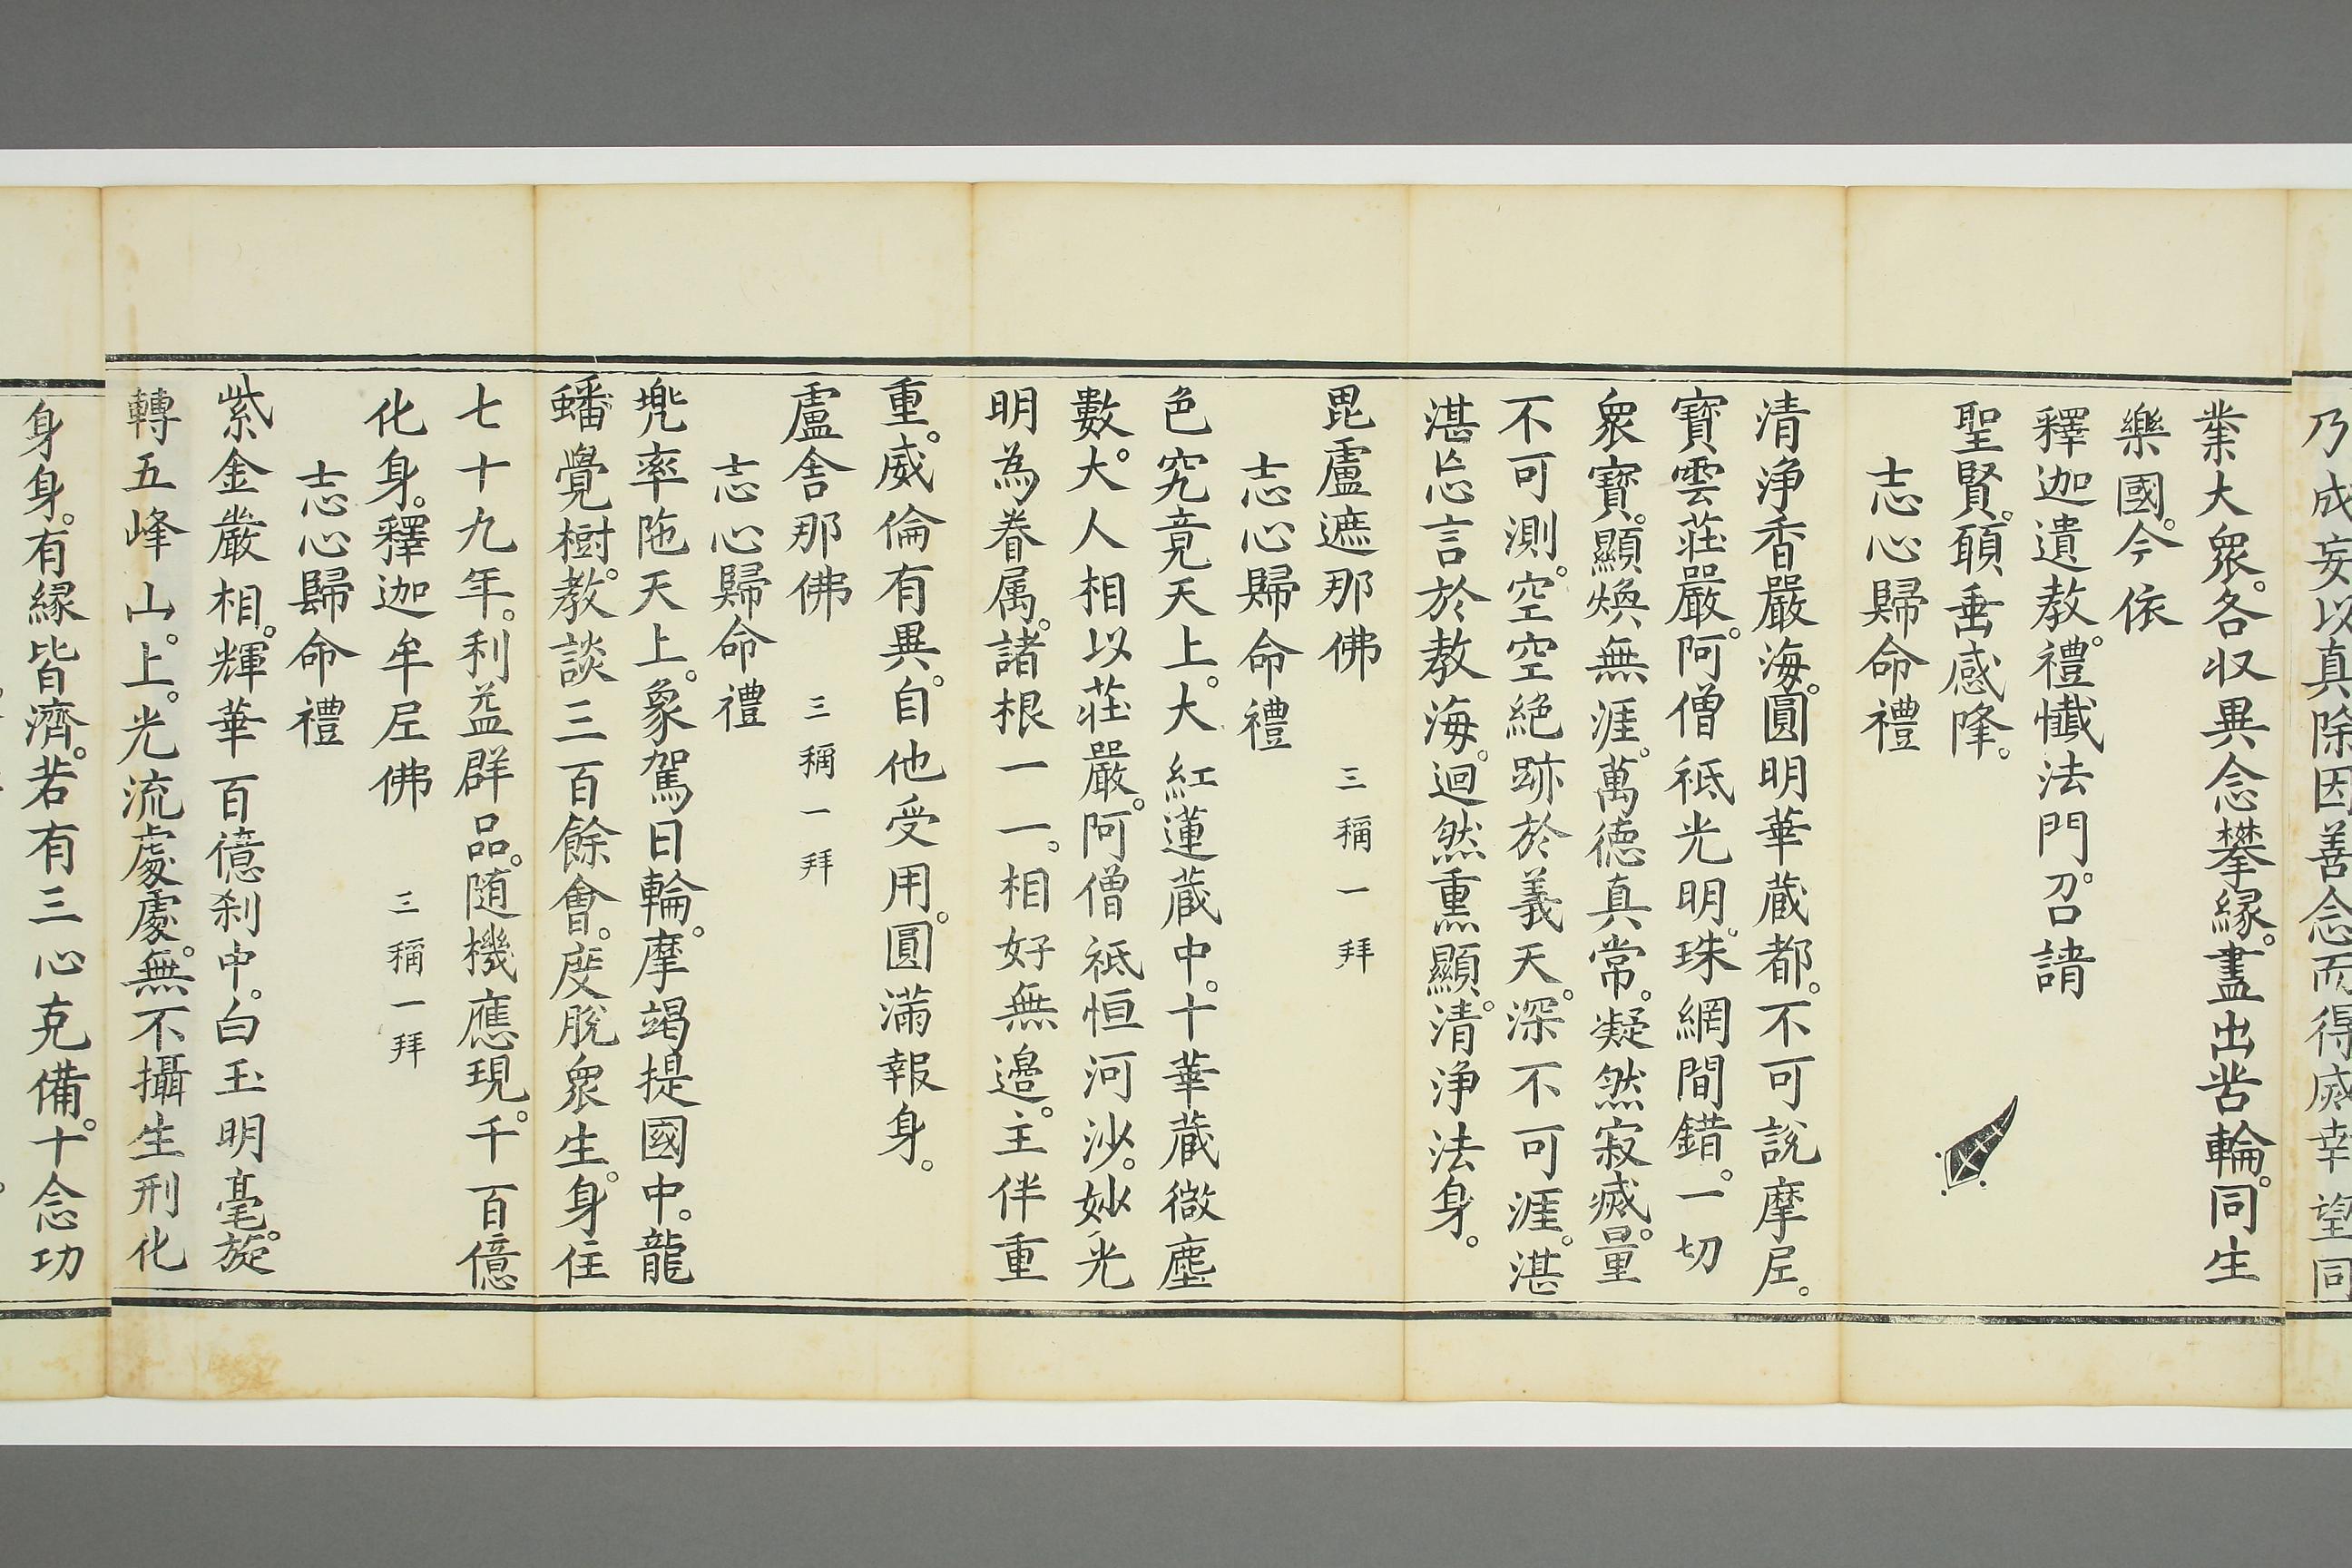 乃成妄以真除因善念而得滅幸望同
業大衆。各収異念攀緣。盡出苦輪。同生
樂國。今依
釋迦遺教。禮懺法門。召請
聖賢。願垂感降。
志心歸命禮
清淨香嚴海。圓明華蔵都。不可說摩尼。
寶雲莊嚴。阿僧祇光明。珠網間錯。一切
衆寶。顯煥無涯。萬德真常。凝然寂滅。量
不可測。空空絕跡於義天。深不可涯。湛
湛忘言於教海。迥然熏顯。清淨法身。
毘盧遮那佛 三稱一拜
志心歸命禮
色究竟天上。大紅蓮蔵中。十華蔵微塵
數。大人相以莊嚴。阿僧祇恒河沙。妙光
明為眷属。諸根一一。相好無邊。主伴重
重。威倫有異。自他受用。圓滿報身。
盧舍那佛 三稱一拜
志心歸命禮
兠率陁天上。象駕日輪。摩竭提國中。龍
蟠覺樹。教談三百餘會。度脫衆生。身住
七十九年。利益群品。随機應現。千百億
化身。釋迦牟尼佛 三稱一拜
志心歸命禮
紫金嚴相。輝華百億刹中。白玉明毫。旋
轉五峰山。上。光流處處。無不攝生刑化
身身。有緣皆濟。若有三心克備。十念功